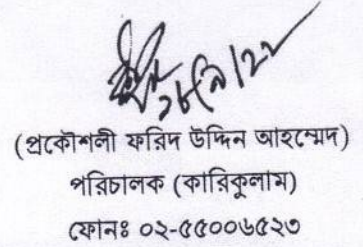 (প্রকৌশলী ফরিদ উদ্দিন আহম্মেদ)
পরিচালক (কারিকুলাম)
ফোনঃ ০২-৫৫০০৬৫২৩